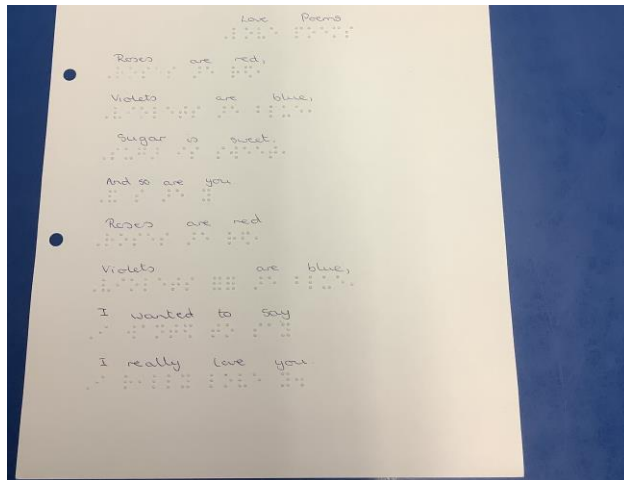 Love Poems
Roses are red,
Violets are blue,
Sugar is sweet,
And so are you
Roses are red
Violets are blue,
I wanted to say
I really love you